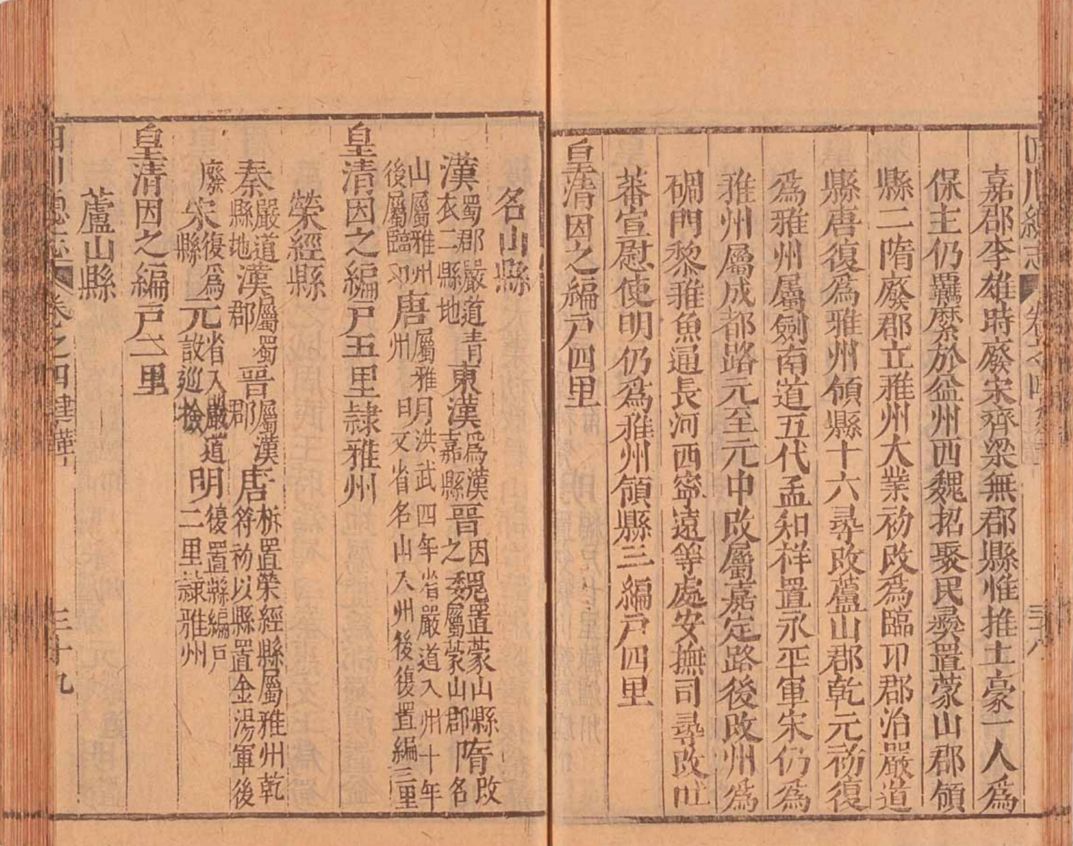 四川總志 卷之四 三十八
嘉郡李雄時廢宋齊梁無郡縣惟推土豪一人爲
保主仍羈縻於益州西魏招聚民彝置蒙山郡領
縣二隋廢郡立雅州大業初改爲臨邛郡治嚴道
縣唐復爲雅州領縣十六尋改蘆山郡乾元初復
爲雅州屬劍南道五代孟知祥置永平軍宋仍爲
雅州屬成都路元至元中改屬嘉定路後改州爲
碉門黎雅魚通長河西寧遠等處安撫司尋改吐
蕃宣慰使明仍爲雅州領縣三編戶四里
皇清因之編戶四里
名山縣
漢蜀郡嚴道青衣二縣地東漢爲漢嘉縣晉因之魏置蒙山縣屬蒙山郡隋改名
山屬雅州後屬臨邛唐屬雅州明洪武四年省嚴道入州十年又省名山入州後復置編三里
皇清因之編戶五里隷雅州
滎經縣
秦嚴道縣地漢屬蜀郡晉屬漢郡唐析置滎經縣屬雅州乾符初以縣置金湯軍後
廢宋復爲縣元省入嚴道設巡檢明復置縣編戶二里隷雅州
皇清因之編戶二里
蘆山縣
四川總志 卷之四 建革 三十九